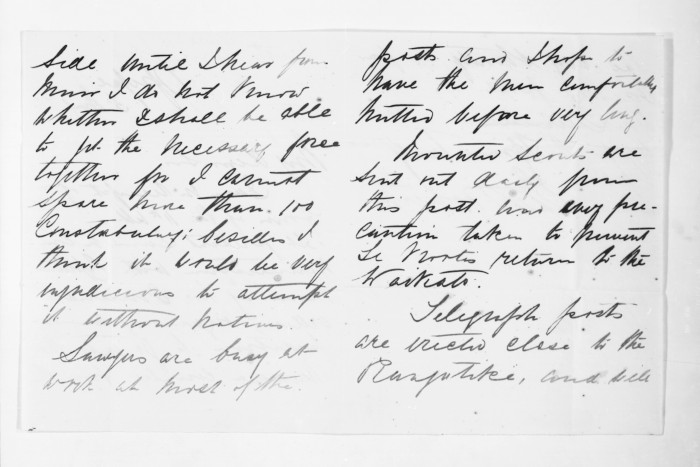 side until I hear from
Minr I do not know
whether I shall be able
to get the necessary force
together for I cannot
spare more than 100
Constabulary; besides I
think it would be very
injudicious to attempt
it without Natives.
Sawyers are busy at
work at most of the
posts and I hope to
have the men comfortably
hutted before very long.
Mounted Scouts are
sent out daily from
this post and every pre-
caution taken to prevent
Te Kootis return to the
Waikato.
Telegraph posts
are erected close to the
Rangitiki, and will